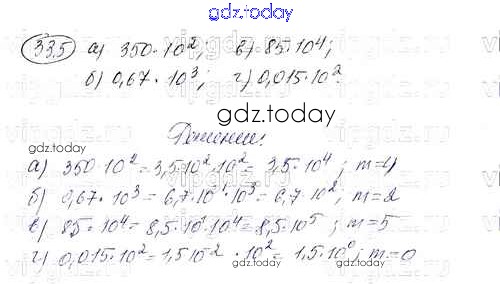 gdz.today
335 а) 350·10²; в) 85·10⁴;
б) 0,67·10³; г) 0,015·10²
gdz.today
Решение:
а) 350·10² = 3,5·10²·10² = 3,5·10⁴; m=4
б) 0,67·10³ = 6,7·10⁻¹·10³ = 6,7·10²; m=2
в) 85·10⁴ = 8,5·10¹·10⁴ = 8,5·10⁵; m=5
г) 0,015·10² = 1,5·10⁻²·10² = 1,5·10⁰; m=0
gdz.today
gdz.today